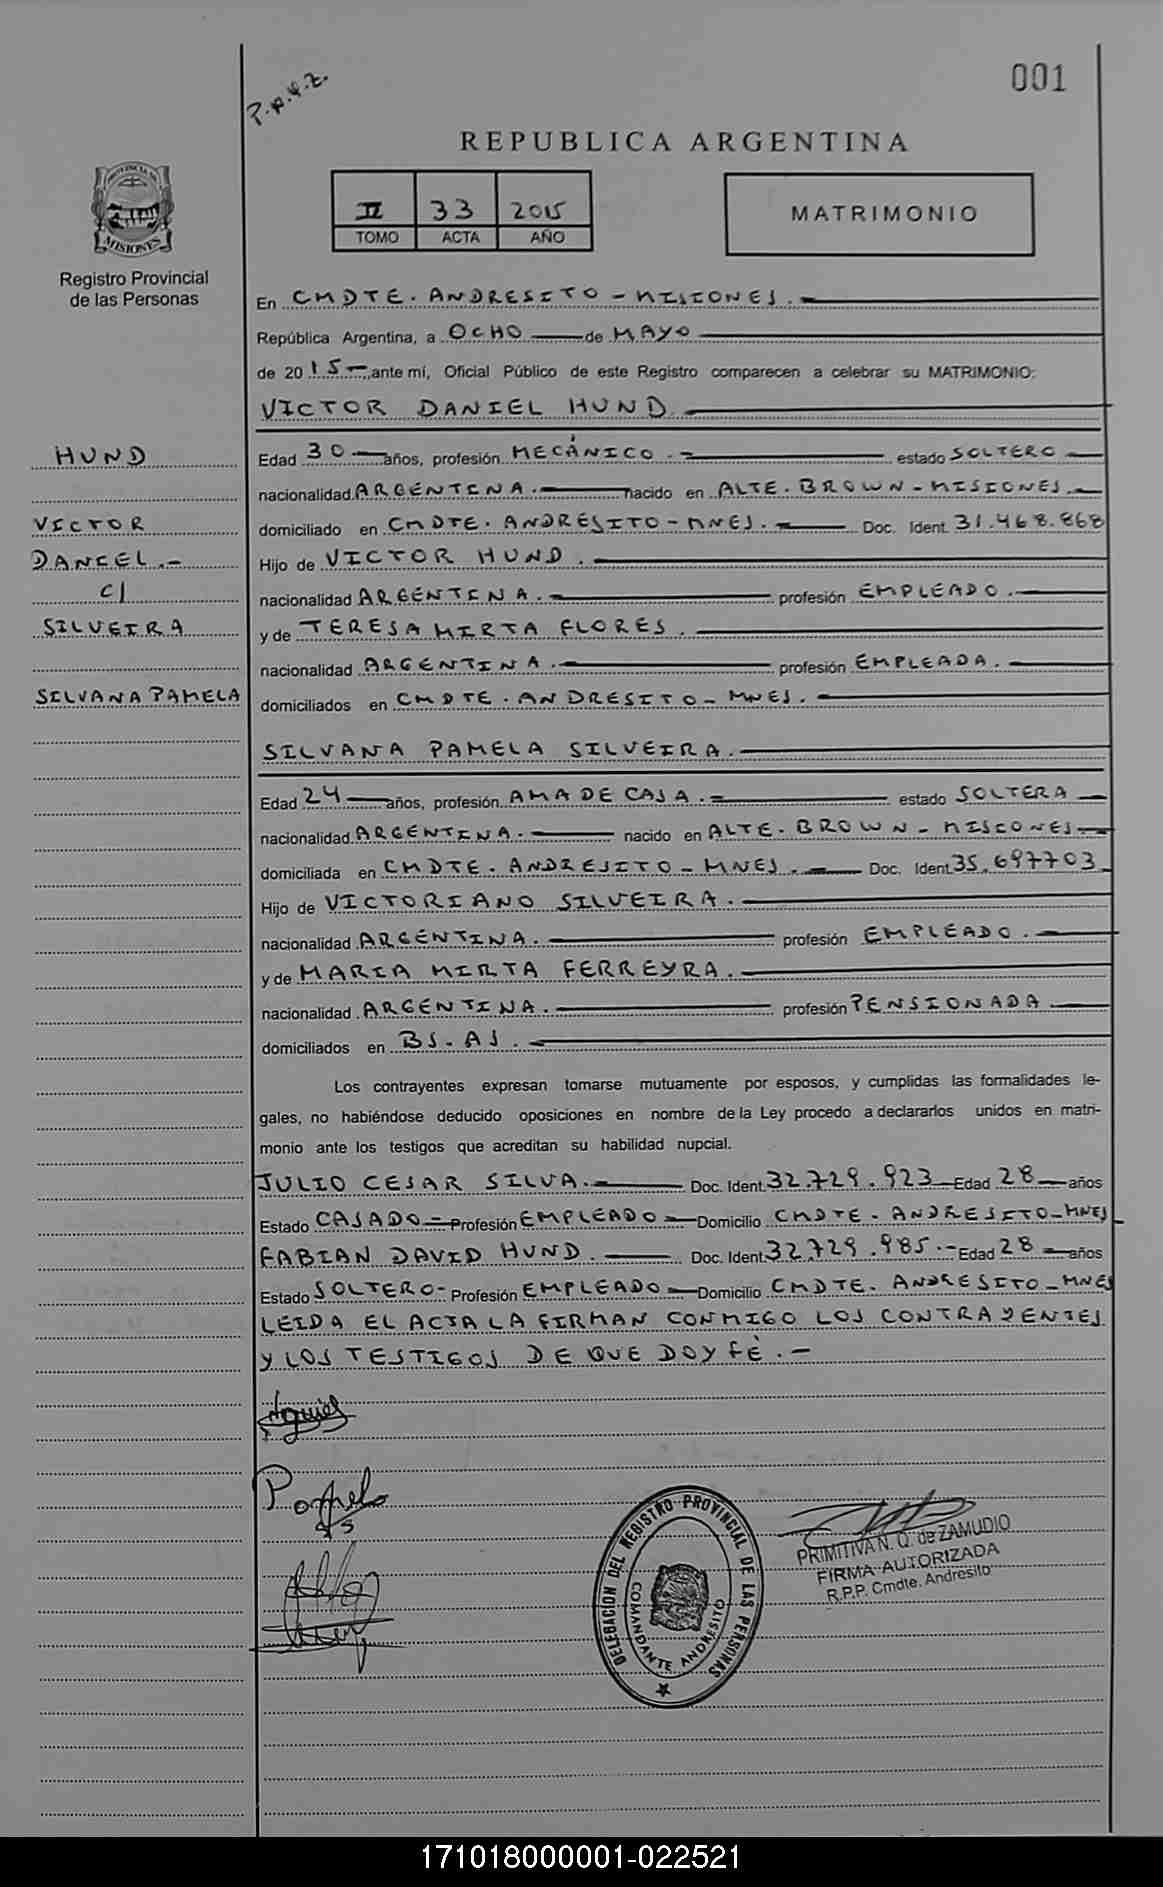 001
P.A.4.2.
REPUBLICA ARGENTINA
PROVINCIA DE
MISIONES
Registro Provincial
de las Personas
II 33 2015
TOMO ACTA AÑO
MATRIMONIO
En CMDTE. ANDRESITO - MISIONES.
República Argentina, a OCHO de MAYO
de 2015 ,ante mí, Oficial Público de este Registro comparecen a celebrar su MATRIMONIO:
VICTOR DANIEL HUND
HUND
VICTOR
DANIEL.-
C/
SILVEIRA
SILVANA PAMELA
Edad 30 años, profesión MECÁNICO.- estado SOLTERO
nacionalidad ARGENTINA. nacido en ALTE. BROWN - MISIONES.
domiciliado en CMDTE. ANDRESITO - MNES. Doc. Ident. 31.468.868
Hijo de VICTOR HUND.
nacionalidad ARGENTINA. profesión EMPLEADO.
y de TERESA MIRTA FLORES.
nacionalidad ARGENTINA. profesión EMPLEADA.
domiciliados en CMDTE. ANDRESITO - MNES.
SILVANA PAMELA SILVEIRA.
Edad 24 años, profesión AMA DE CASA. estado SOLTERA
nacionalidad ARGENTINA. nacido en ALTE. BROWN - MISIONES.
domiciliada en CMDTE. ANDRESITO - MNES. Doc. Ident. 35.697703
Hijo de VICTORIANO SILVEIRA.
nacionalidad ARGENTINA. profesión EMPLEADO.
y de MARIA MIRTA FERREYRA.
nacionalidad ARGENTINA. profesión PENSIONADA
domiciliados en BS. AS.
Los contrayentes expresan tomarse mutuamente por esposos, y cumplidas las formalidades le-
gales, no habiéndose deducido oposiciones en nombre de la Ley procedo a declararlos unidos en matri-
monio ante los testigos que acreditan su habilidad nupcial.
JULIO CESAR SILVA. Doc. Ident. 32.729.923 Edad 28 años
Estado CASADO - Profesión EMPLEADO - Domicilio CMDTE. ANDRESITO - MNES
FABIAN DAVID HUND. Doc. Ident. 32.729.985.- Edad 28 años
Estado SOLTERO - Profesión EMPLEADO - Domicilio CMDTE. ANDRESITO - MNES
LEIDA EL ACTA LA FIRMAN CONMIGO LOS CONTRAYENTES
Y LOS TESTIGOS DE QUE DOY FÉ.-
Pamela
DELEGACION DEL REGISTRO PROVINCIAL DE LAS PERSONAS
COMANDANTE ANDRESITO
PRIMITIVA N. Q. de ZAMUDIO
FIRMA AUTORIZADA
R.P.P. Cmdte. Andresito
171018000001-022521